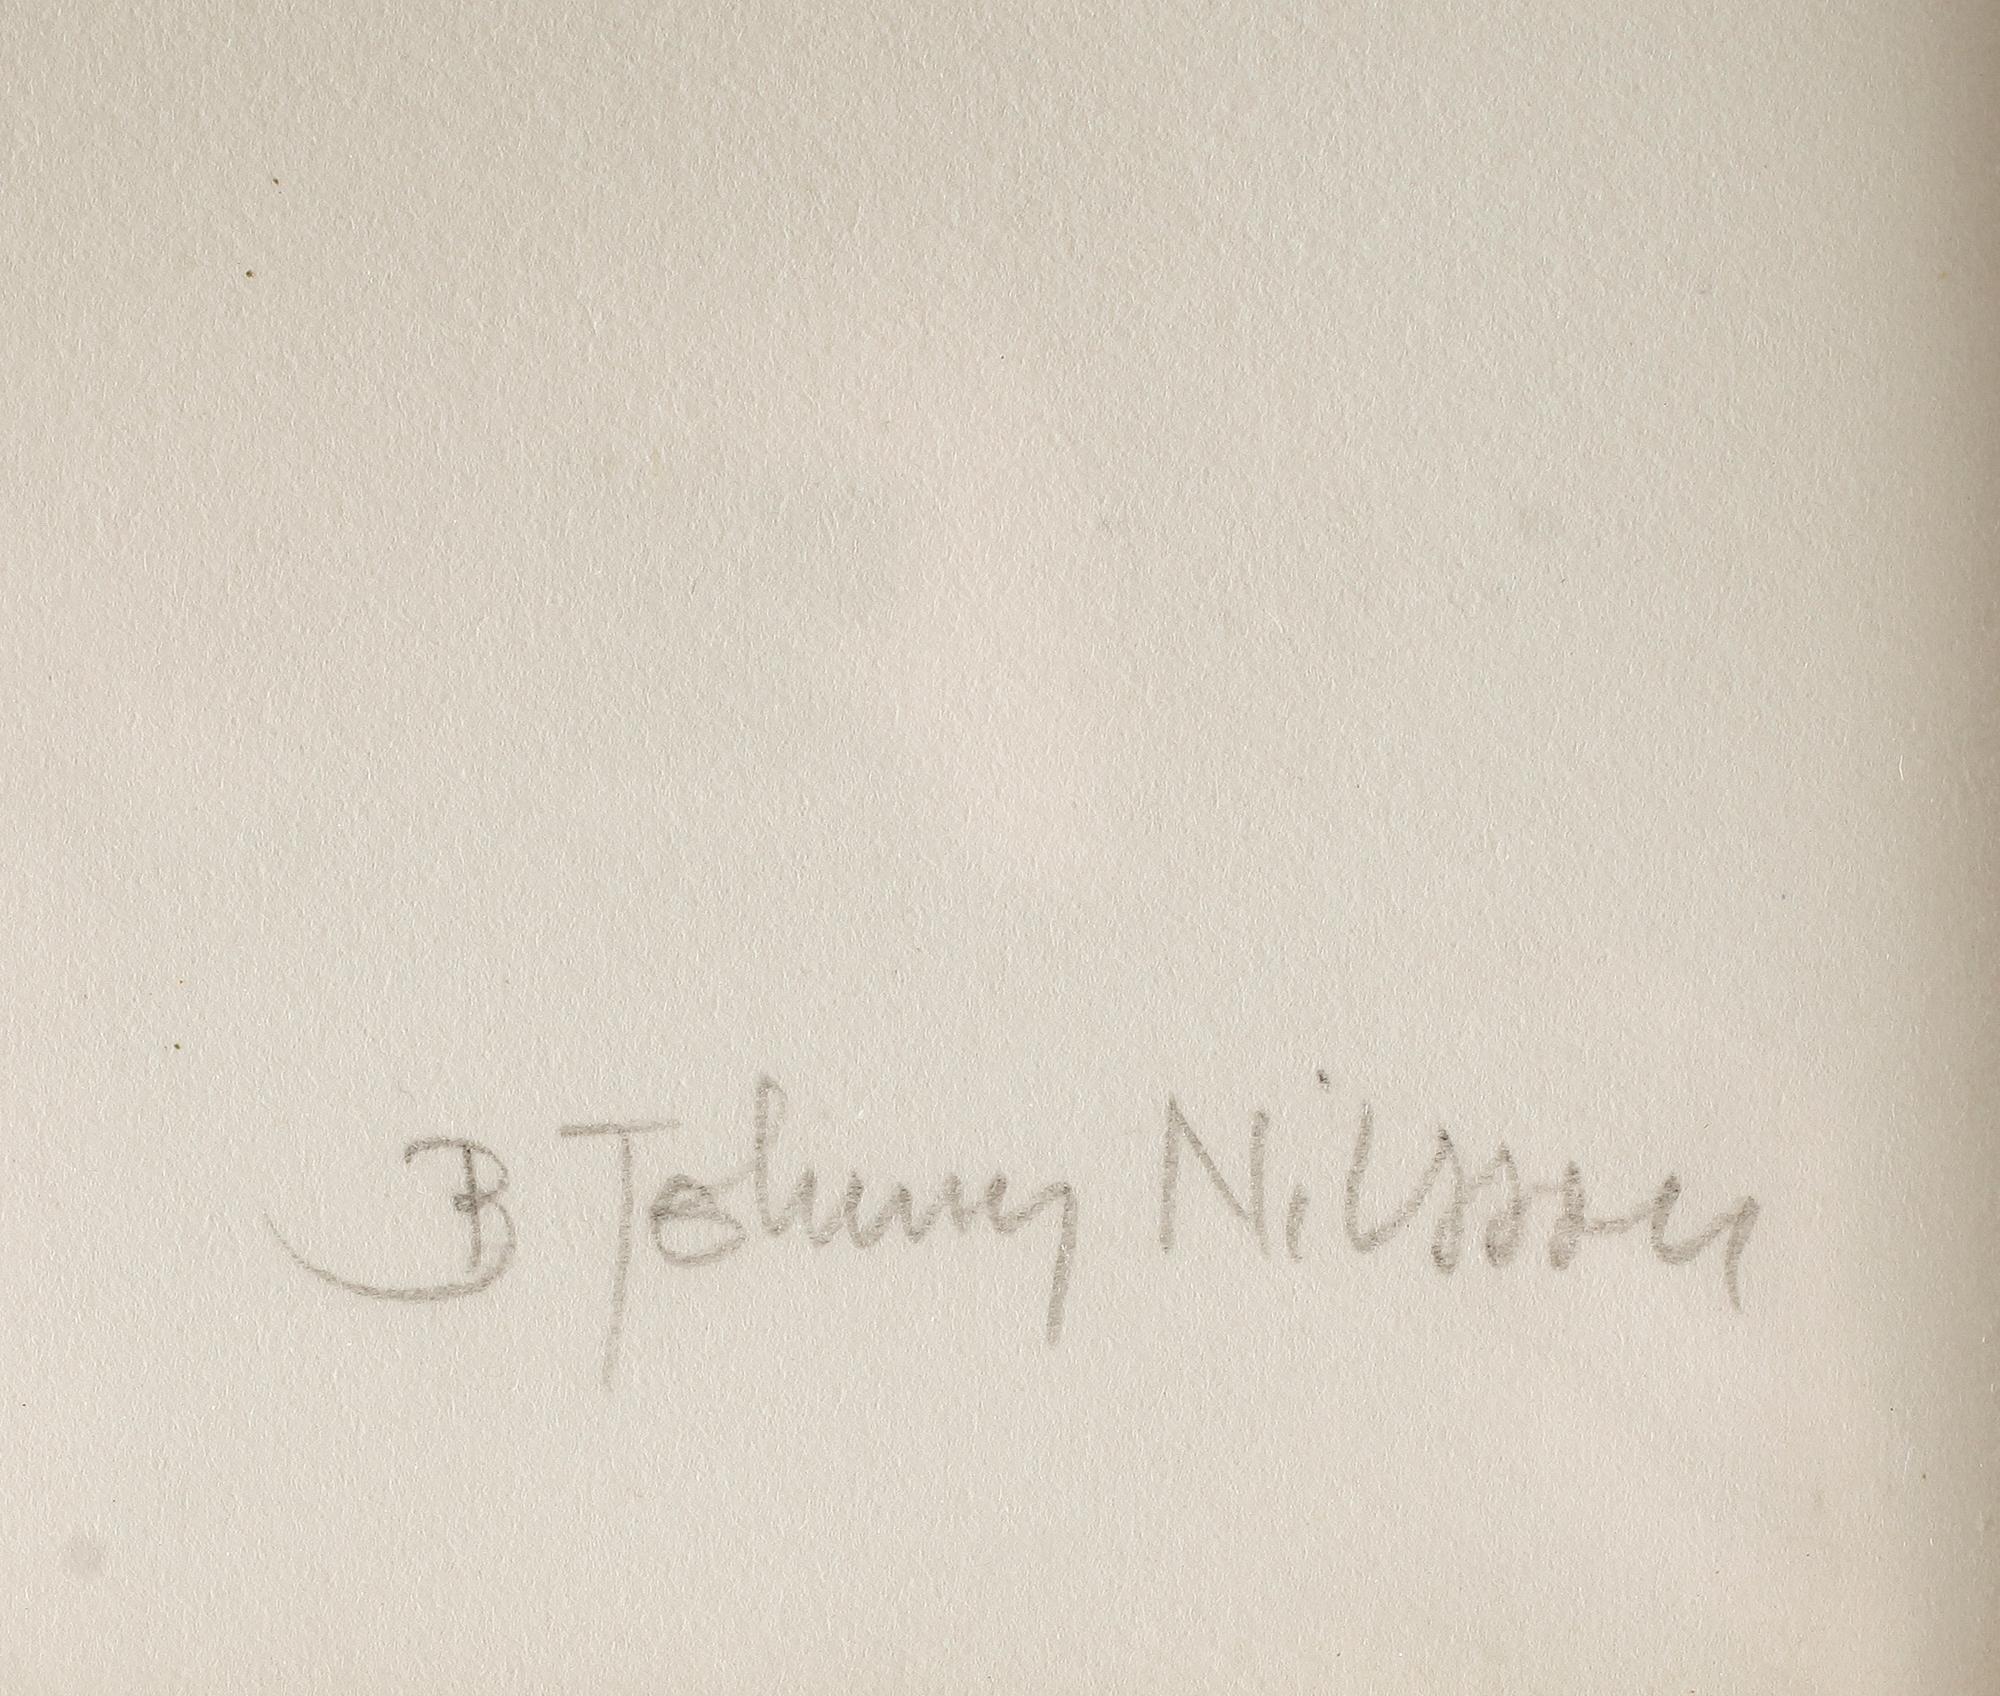 B Johnny Nilsson